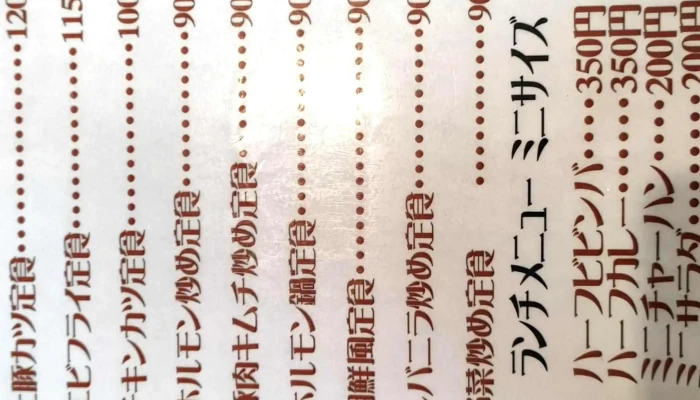 豚カツ定食・・・・・・・・・・120
エビフライ定食・・・・・・・・・・115
チキンカツ定食・・・・・・・・・・100
ホルモン炒め定食・・・・・・・・90
豚肉キムチ炒め定食・・・・・・90
ホルモン鍋定食・・・・・・・・・・90
朝鮮風定食・・・・・・・・・・・・90
レバニラ炒め定食・・・・・・・・90
野菜炒め定食・・・・・・・・90
ランチメニュー ミニサイズ
ハーフビビンバ・・・・350円
ハーフカレー・・・・・・350円
ミニチャーハン・・・・200円
ミニサラダ・・・・200円